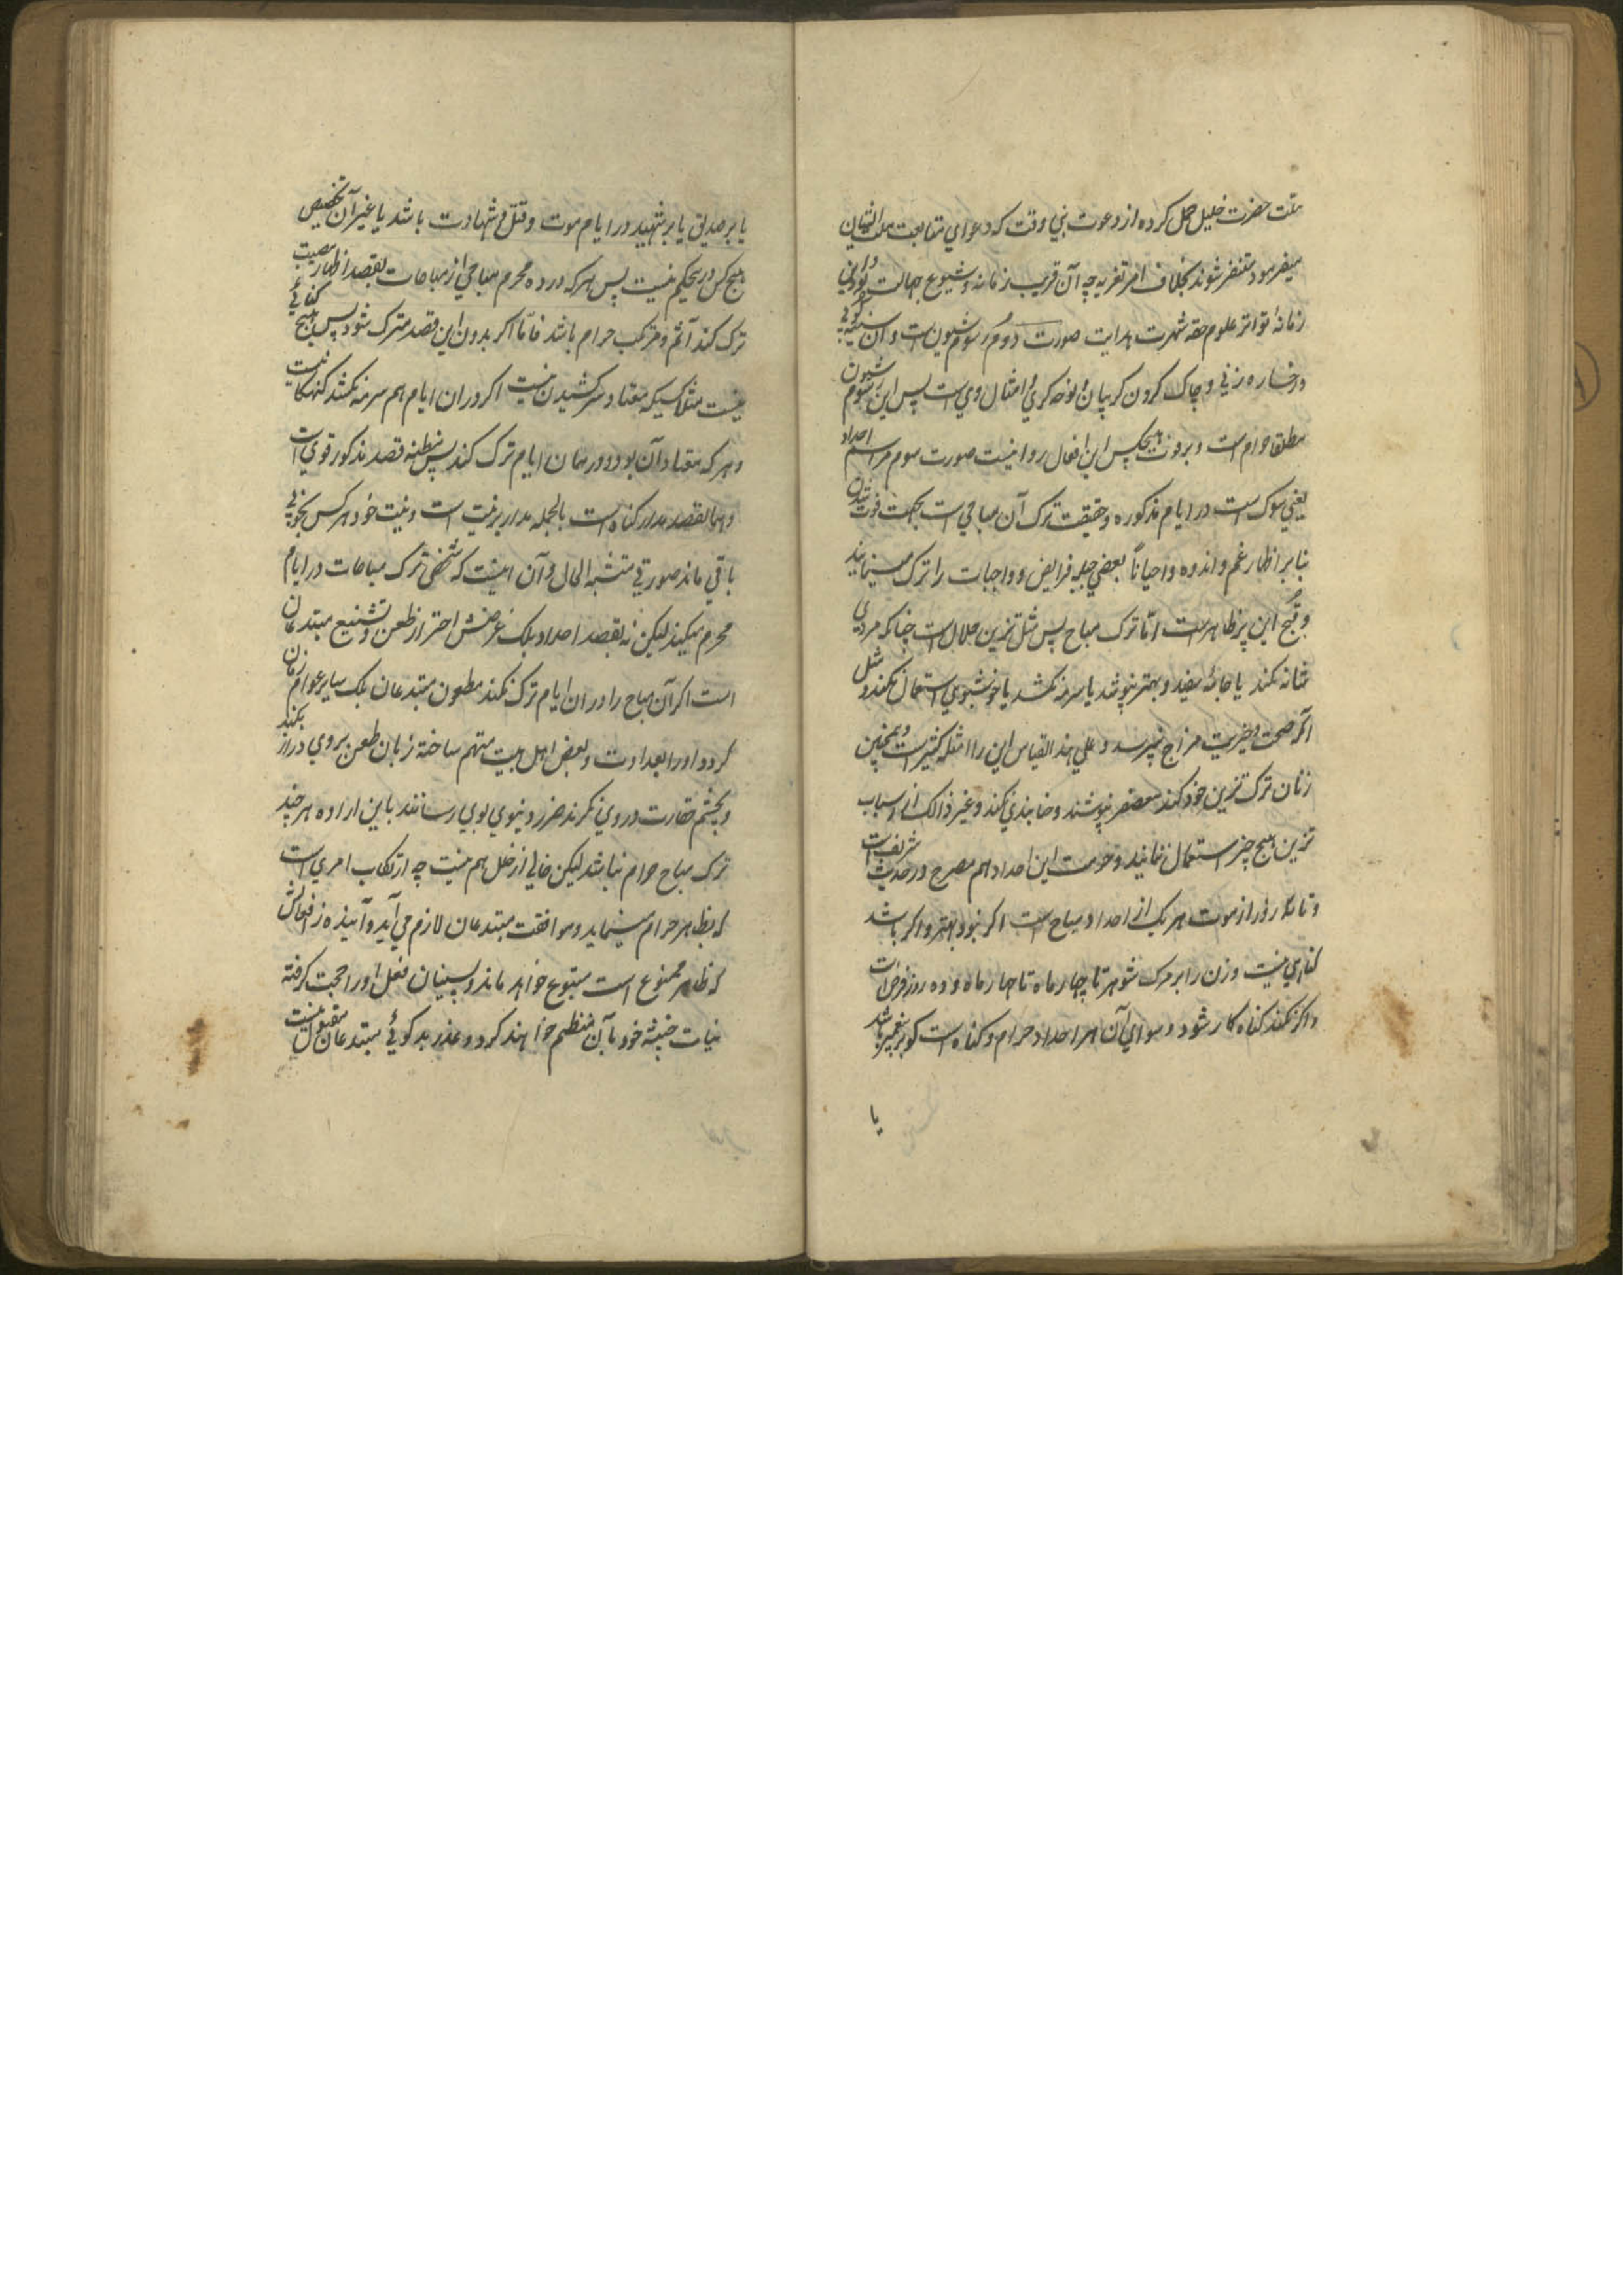 ملت حضرت خلیل حمل کرده از دعوت نبی وقت که دعوای متابعت ملت ایشان
میفرمود متنفر شوند بخلاف امر تعزیه چه آن قریب زمانه و شیوع جهالت بود و این
زمانهٔ تواتر علوم حقه شهرت هدایت صورت دوم رسوم شیون است و آن سینه کوبی
و رخساره زنی و چاک کردن کریبان و نوحه کری و امثال وی است پس این رسوم شیون
مطلقا حرام است و بر فوت هیچکس این افعال روا نیست صورت سوم مراسم احداد
یعنی سوک است در ایام مذکوره و حقیقت ترک آن مباحی است بجهت فوت شدن
بنا بر اظهار غم و اندوه و احیاناً بعضی جهله فرایض و واجبات را ترک مینمایند
و قبح این پر ظاهر است امّا ترک مباح پس مثل تزین حلال است چنانکه مردی
شانه نکند یا جامهٔ سفید و بهتر نپوشد یا سرمه نکشد یا خوشبوی استعمال نکند و مثل
آنکه صحت و خیریت مزاج نپرسد و علی هذا القیاس این را امثله کثیر است و همچنین
زنان ترک تزین خود کنند معصفر نپوشند و حنابندی نکنند و غیر ذالک از اسباب
تزین هیچ چیز استعمال ننمایند و حرمت این احداد هم مصرح در حدیث شریف است
و تا سه روز از موت هر یک از احداد مباح است اکر نبود بهتر و اکر باشد
کناهی نیست و زن را بر مرک شوهر تا چهار ماه تا چهار ماه و ده روز فرض است
و اکر نکند کناه کار شود و سوای آن هر احداد حرام و کناه است کو بر پیغمبر باشد
یا
یا بر صدیق یا بر شهید در ایام موت و قتل و شهادت باشد یا غیر آن تخصیص
هیچ کس در حکم نیست پس هر که در ده محرم مباحی از مباحات بقصد اظهار مصیبت
ترک کند آثم و مرتکب حرام باشد فامّا اکر بدون این قصد مترک شود پس هیچ کناهی
نیست مثلا کسیکه معتاد سرمه کشیدن نیست اکر در ان ایام هم سرمه نکشد کنهکار نیست
و هر که معتاد آن بود و در همان ایام ترک کند پس مظنه قصد مذکور قوی است
و همان قصد مدار کناه است بالجمله مدار بر نیت است و نیت خود هر کس بخوبی
باقی ماند صورتی مشتبه الحال و آن اینست که شخصی ترک مباحات در ایام
محرم میکند لیکن نه بقصد احداد بلکه غرضش احتراز طعن و تشنیع مبتدعان
است اکر آن مباح را در ان ایام ترک نکند مطعون مبتدعان بلکه سایر عوام زمان
کردد او را بعداوت و بغض اهل بیت متهم ساخته زبان طعن بروی دراز بکنند
و بچشم حقارت در وی نکرند ضرر دنیوی بوی رسانند باین اراده هر چند
ترک مباح حرام نباشد لیکن خالی از خلل هم نیست چه ارتکاب امری است
که بظاهر حرام مینماید و موافقت مبتدعان لازم می آید و آینده از افعالش
که ظاهر ممنوع است متبوع خواهد ماند و پسینیان فعل او را حجت کرفته
نیات خبیثه خود بآن منظم خواهند کرد و عذر بد کوئی مبتدعان مقبول نیست